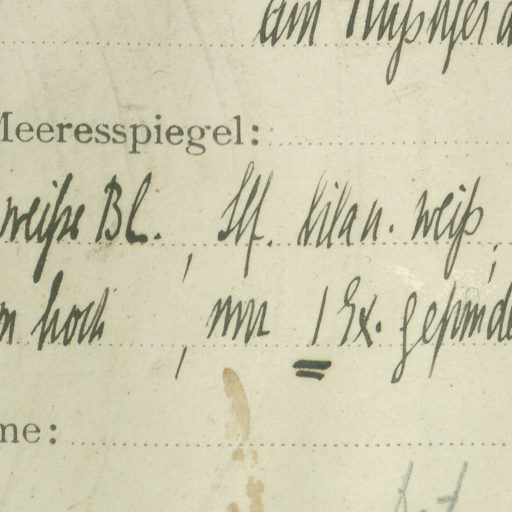 am
Meeresspiegel:
weiße Bl., Stf. lila u. weiß,
m hoch, nur 1 Ex. gefunde
me: